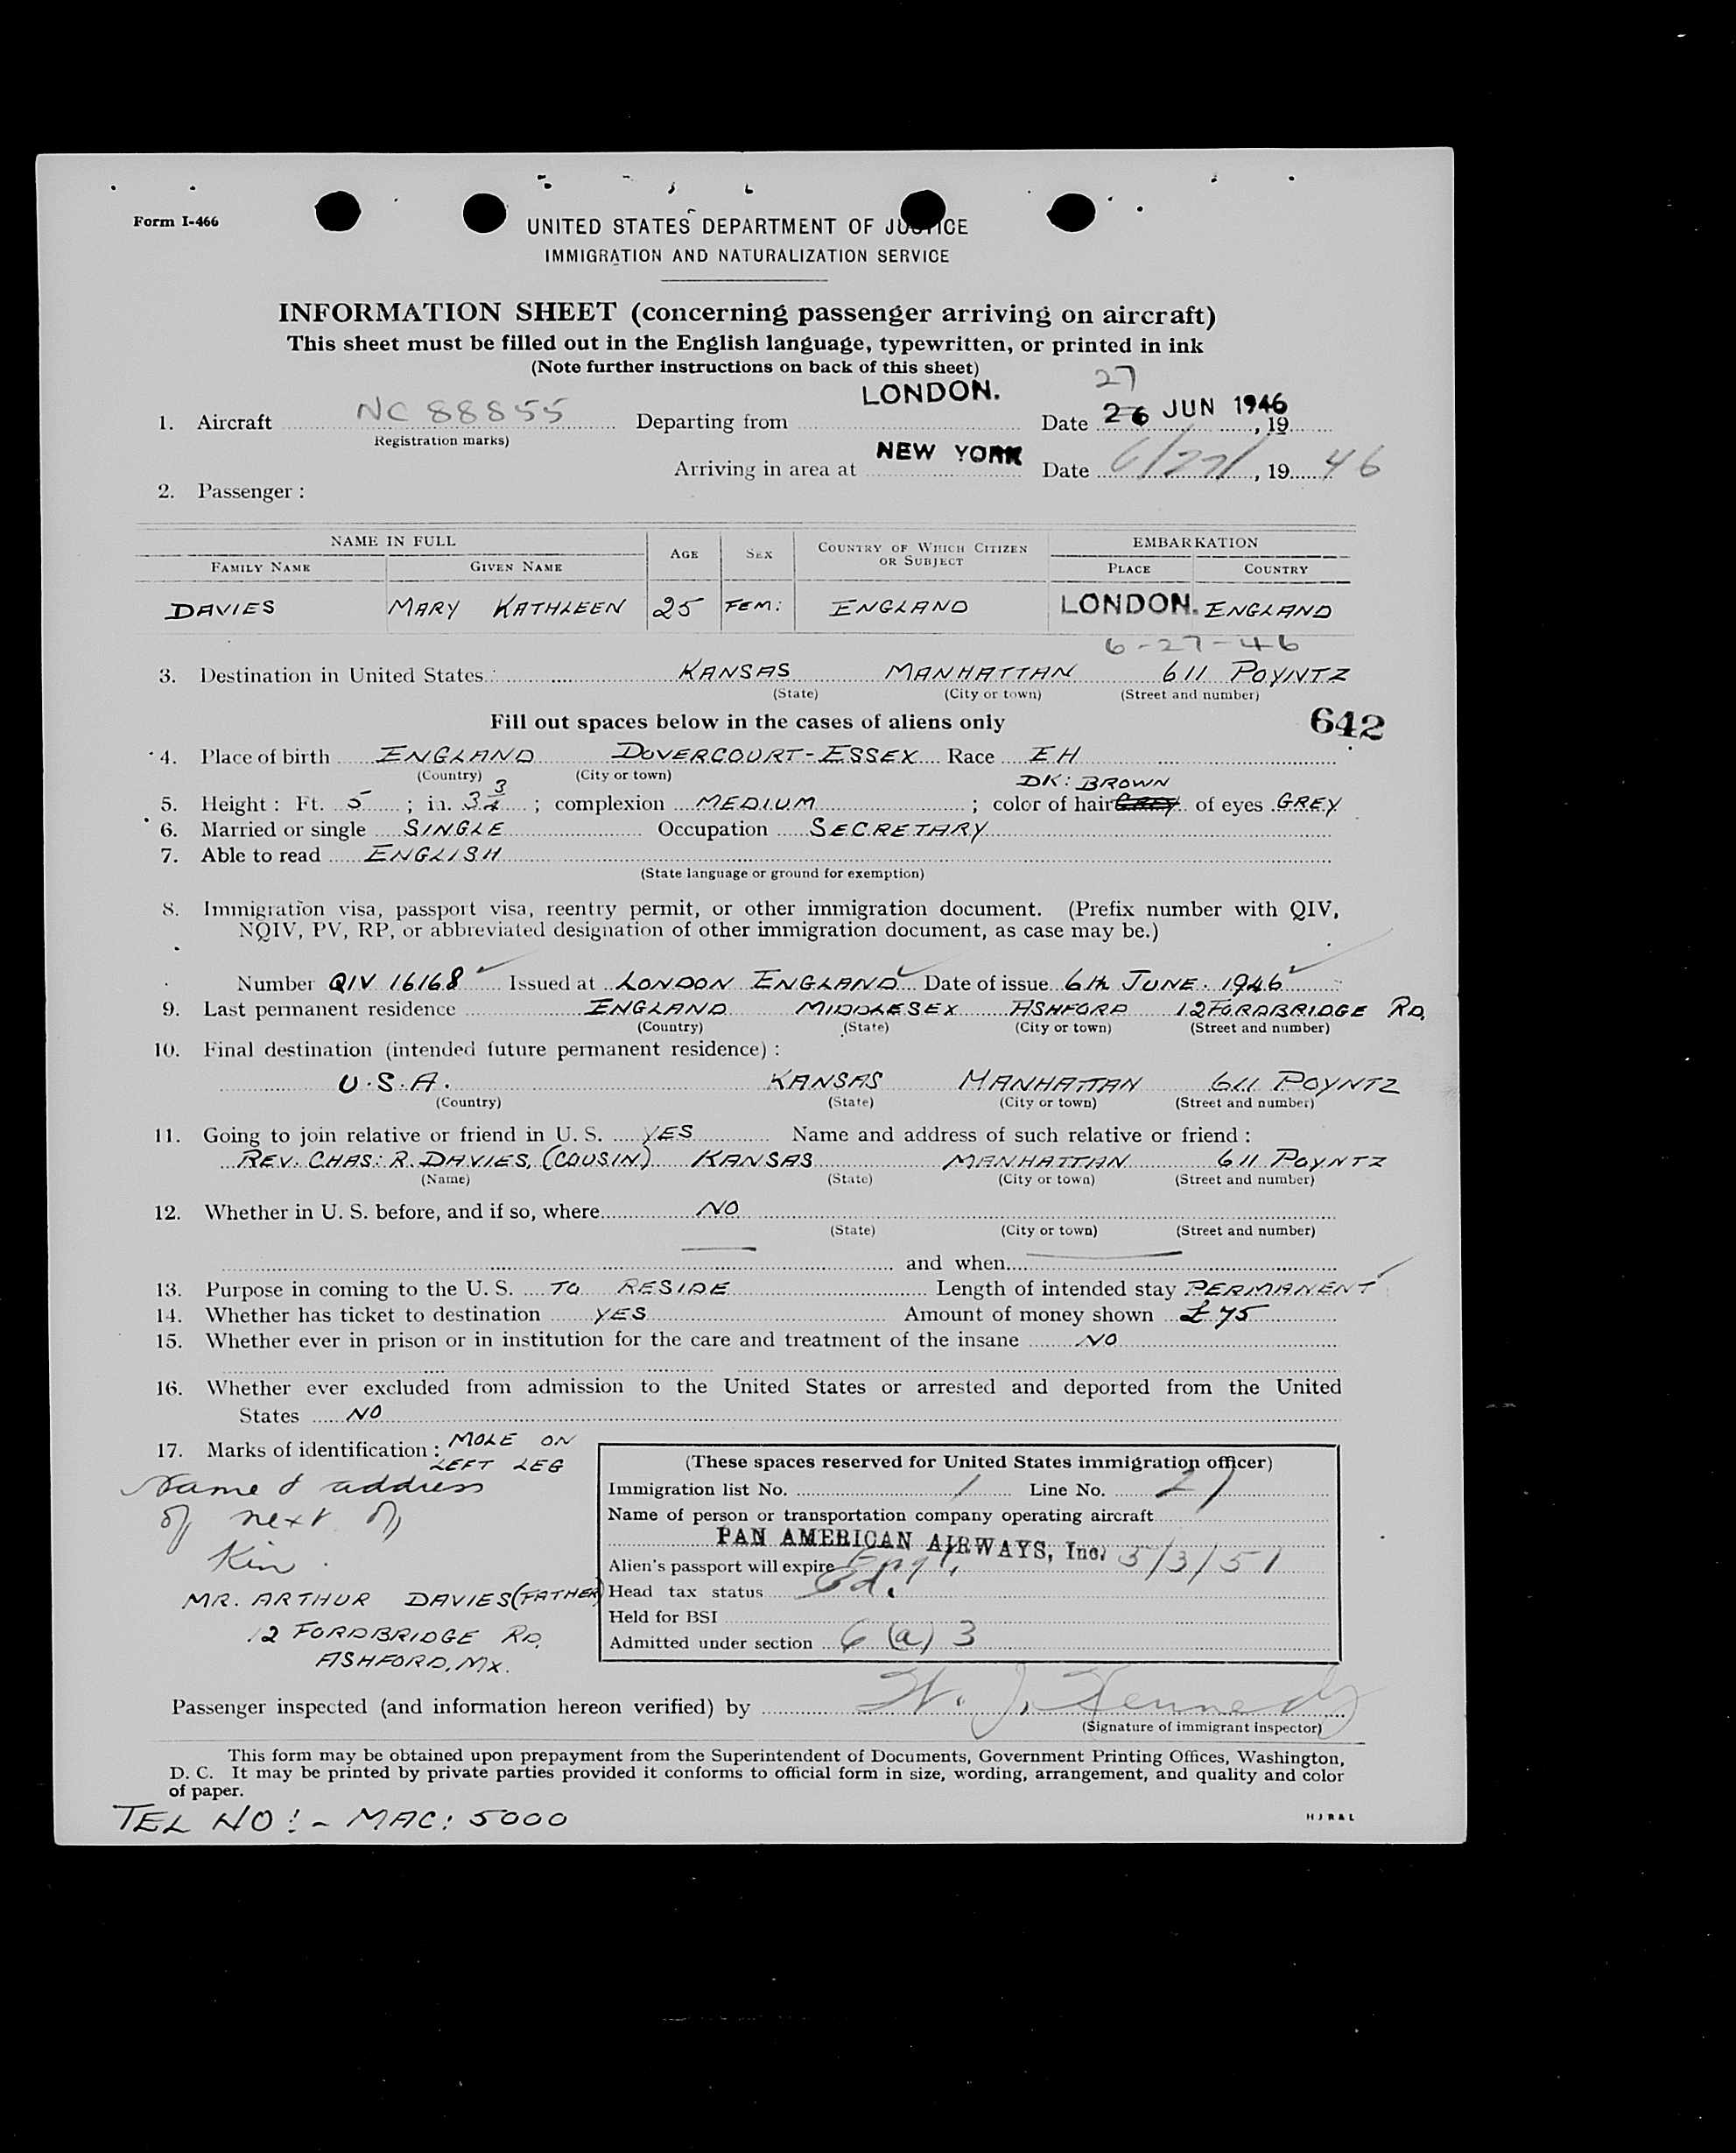 Form I-466
UNITED STATES DEPARTMENT OF JUSTICE
IMMIGRATION AND NATURALIZATION SERVICE
INFORMATION SHEET (concerning passenger arriving on aircraft)
This sheet must be filled out in the English language, typewritten, or printed in ink
(Note further instructions on back of this sheet)
27
1. Aircraft NC 88855 Departing from LONDON. Date 26 JUN 1946, 19
Registration marks)
Arriving in area at NEW YORK Date 6/27/, 19 46
2. Passenger :
NAME IN FULL AGE SEX COUNTRY OF WHICH CITIZEN OR SUBJECT EMBARKATION
FAMILY NAME GIVEN NAME PLACE COUNTRY
DAVIES MARY KATHLEEN 25 FEM: ENGLAND LONDON. ENGLAND
6-27-46
3. Destination in United States KANSAS MANHATTAN 611 POYNTZ
(State) (City or town) (Street and number)
Fill out spaces below in the cases of aliens only 642
4. Place of birth ENGLAND DOVERCOURT-ESSEX Race EH
(Country) (City or town) DK: BROWN
5. Height : Ft. 5 ; in. 3 3/4 ; complexion MEDIUM ; color of hair GREY of eyes GREY
6. Married or single SINGLE Occupation SECRETARY
7. Able to read ENGLISH
(State language or ground for exemption)
8. Immigration visa, passport visa, reentry permit, or other immigration document. (Prefix number with QIV,
NQIV, PV, RP, or abbreviated designation of other immigration document, as case may be.)
Number QIV 16168 Issued at LONDON ENGLAND Date of issue 6th JUNE. 1946
9. Last permanent residence ENGLAND MIDDLESEX ASHFORD 12 FORDBRIDGE RD.
(Country) (State) (City or town) (Street and number)
10. Final destination (intended future permanent residence) :
U.S.A. KANSAS MANHATTAN 611 POYNTZ
(Country) (State) (City or town) (Street and number)
11. Going to join relative or friend in U. S. YES Name and address of such relative or friend :
REV. CHAS: R. DAVIES, (COUSIN) KANSAS MANHATTAN 611 POYNTZ
(Name) (State) (City or town) (Street and number)
12. Whether in U. S. before, and if so, where NO
(State) (City or town) (Street and number)
and when
13. Purpose in coming to the U. S. TO RESIDE Length of intended stay PERMANENT
14. Whether has ticket to destination YES Amount of money shown £75
15. Whether ever in prison or in institution for the care and treatment of the insane NO
16. Whether ever excluded from admission to the United States or arrested and deported from the United
States NO
17. Marks of identification : MOLE ON
LEFT LEG
Name & address
of next of
Kin.
MR. ARTHUR DAVIES (FATHER)
12 FORDBRIDGE RD,
ASHFORD, MX.
(These spaces reserved for United States immigration officer)
Immigration list No. 1 Line No. 27
Name of person or transportation company operating aircraft
PAN AMERICAN AIRWAYS, Inc.
Alien's passport will expire Engl, 5/3/51
Head tax status Pd.
Held for BSI
Admitted under section 6 (a) 3
Passenger inspected (and information hereon verified) by W. J. Kennedy
(Signature of immigrant inspector)
This form may be obtained upon prepayment from the Superintendent of Documents, Government Printing Offices, Washington,
D. C. It may be printed by private parties provided it conforms to official form in size, wording, arrangement, and quality and color
of paper.
TEL NO:- MAC: 5000
HJR&L